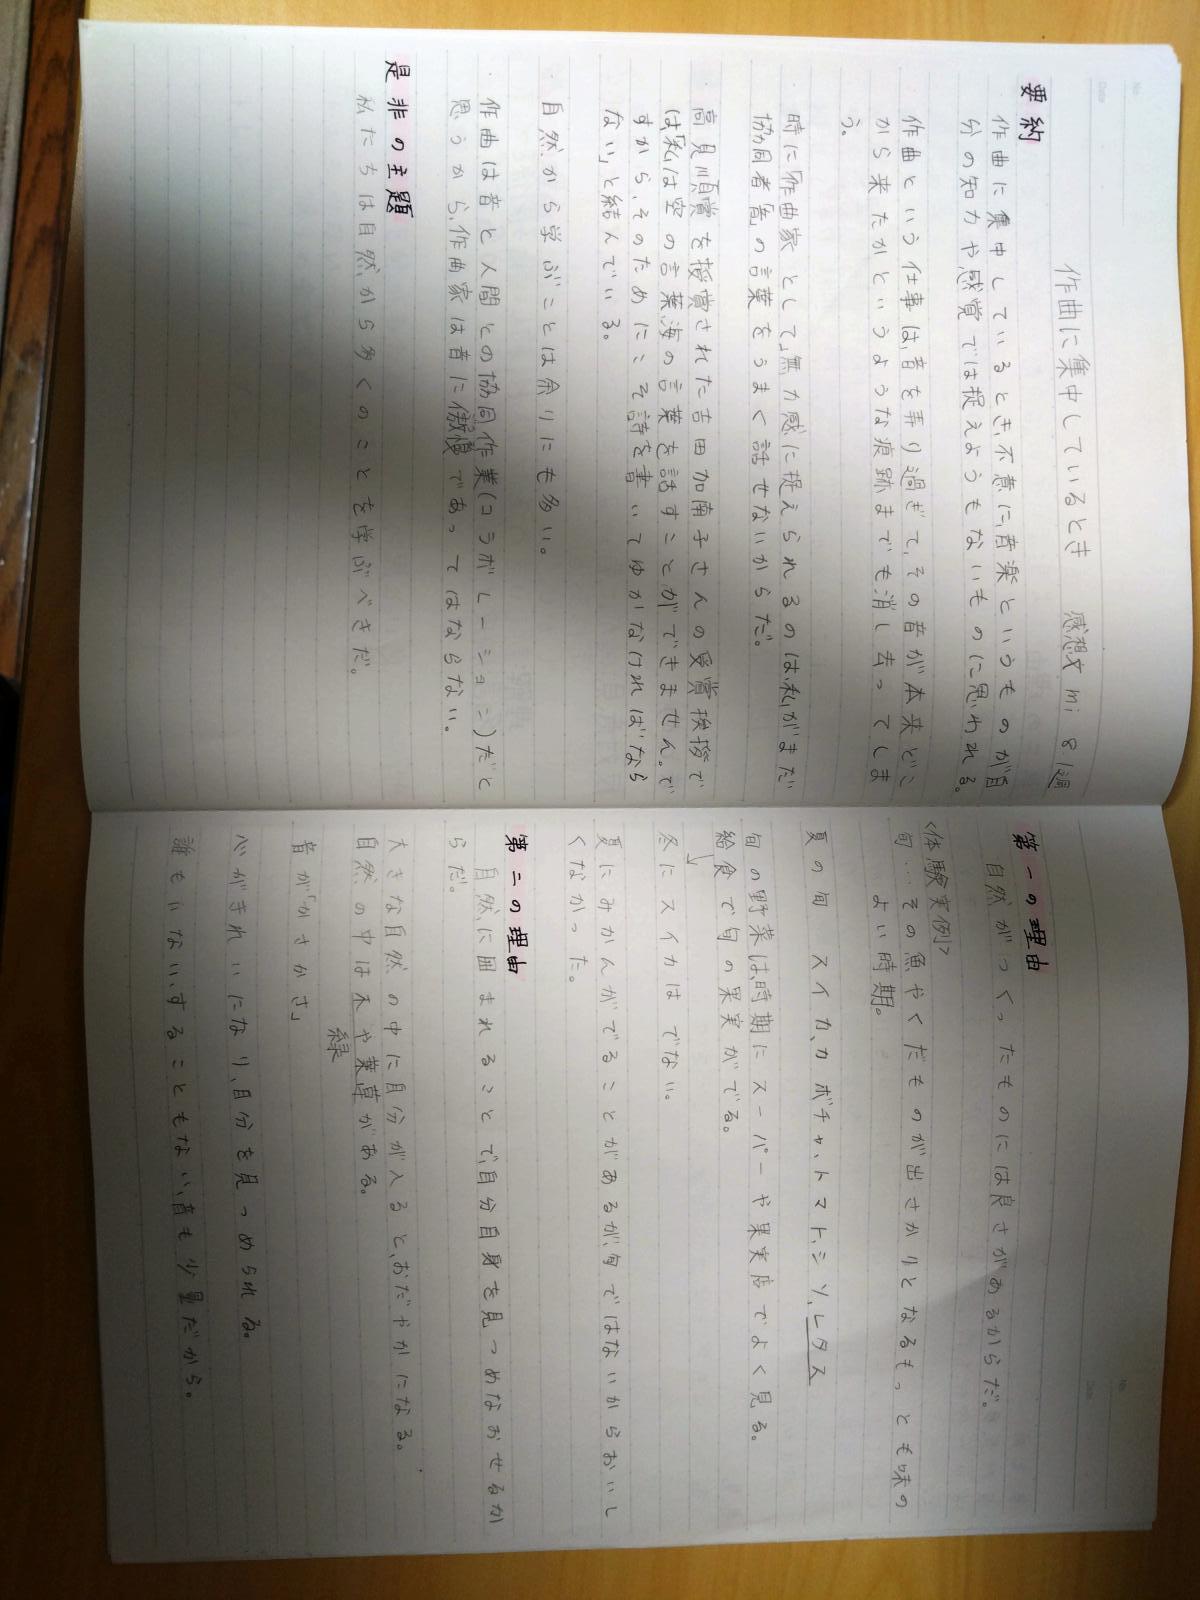 作曲に集中しているとき 感想文 mi 8.1週
要約
作曲に集中しているとき、不意に、音楽というものが自
分の知力や感覚では捉えようもないものに思われる。
作曲という仕事は、音を弄り過ぎて、その音が本来どこ
から来たかというような痕跡までも消し去ってしま
う。
時に「作曲家として」無力感に捉えられるのは、私がまだ
協同者「音」の言葉をうまく話せないからだ。
高見順賞を授賞された吉田加南子さんの受賞挨拶で
は「私は空の言葉、海の言葉を話すことができません。で
すから、そのためにこそ詩を書いてゆかなければなら
ない」と結んでいる。
自然から学ぶことは余りにも多い。
作曲は音と人間との協同作業(コラボレーション)だと
思うから、作曲家は音に傲慢であってはならない。
是非の主題
私たちは自然から多くのことを学ぶべきだ。
第一の理由
自然がつくったものには良さがあるからだ。
<体験実例>
旬…その魚やくだものが出さかりとなるもっとも味の
よい時期。
夏の旬 スイカ、カボチャ、トマト、シソ、レタス
旬の野菜は、時期にスーパーや果実店でよく見る。
給食で旬の果実がでる。
冬にスイカはでない。
夏にみかんがでることがあるが、旬ではないからおいし
くなかった。
第二の理由
自然に囲まれることで、自分自身を見つめなおせるか
らだ。
大きな自然の中に自分が入ると、おだやかになる。
自然の中は木や葉、草がある。
緑
音が「かさかさ」
心がきれいになり、自分を見つめられる。
誰もいない、することもない、音も少量だから。